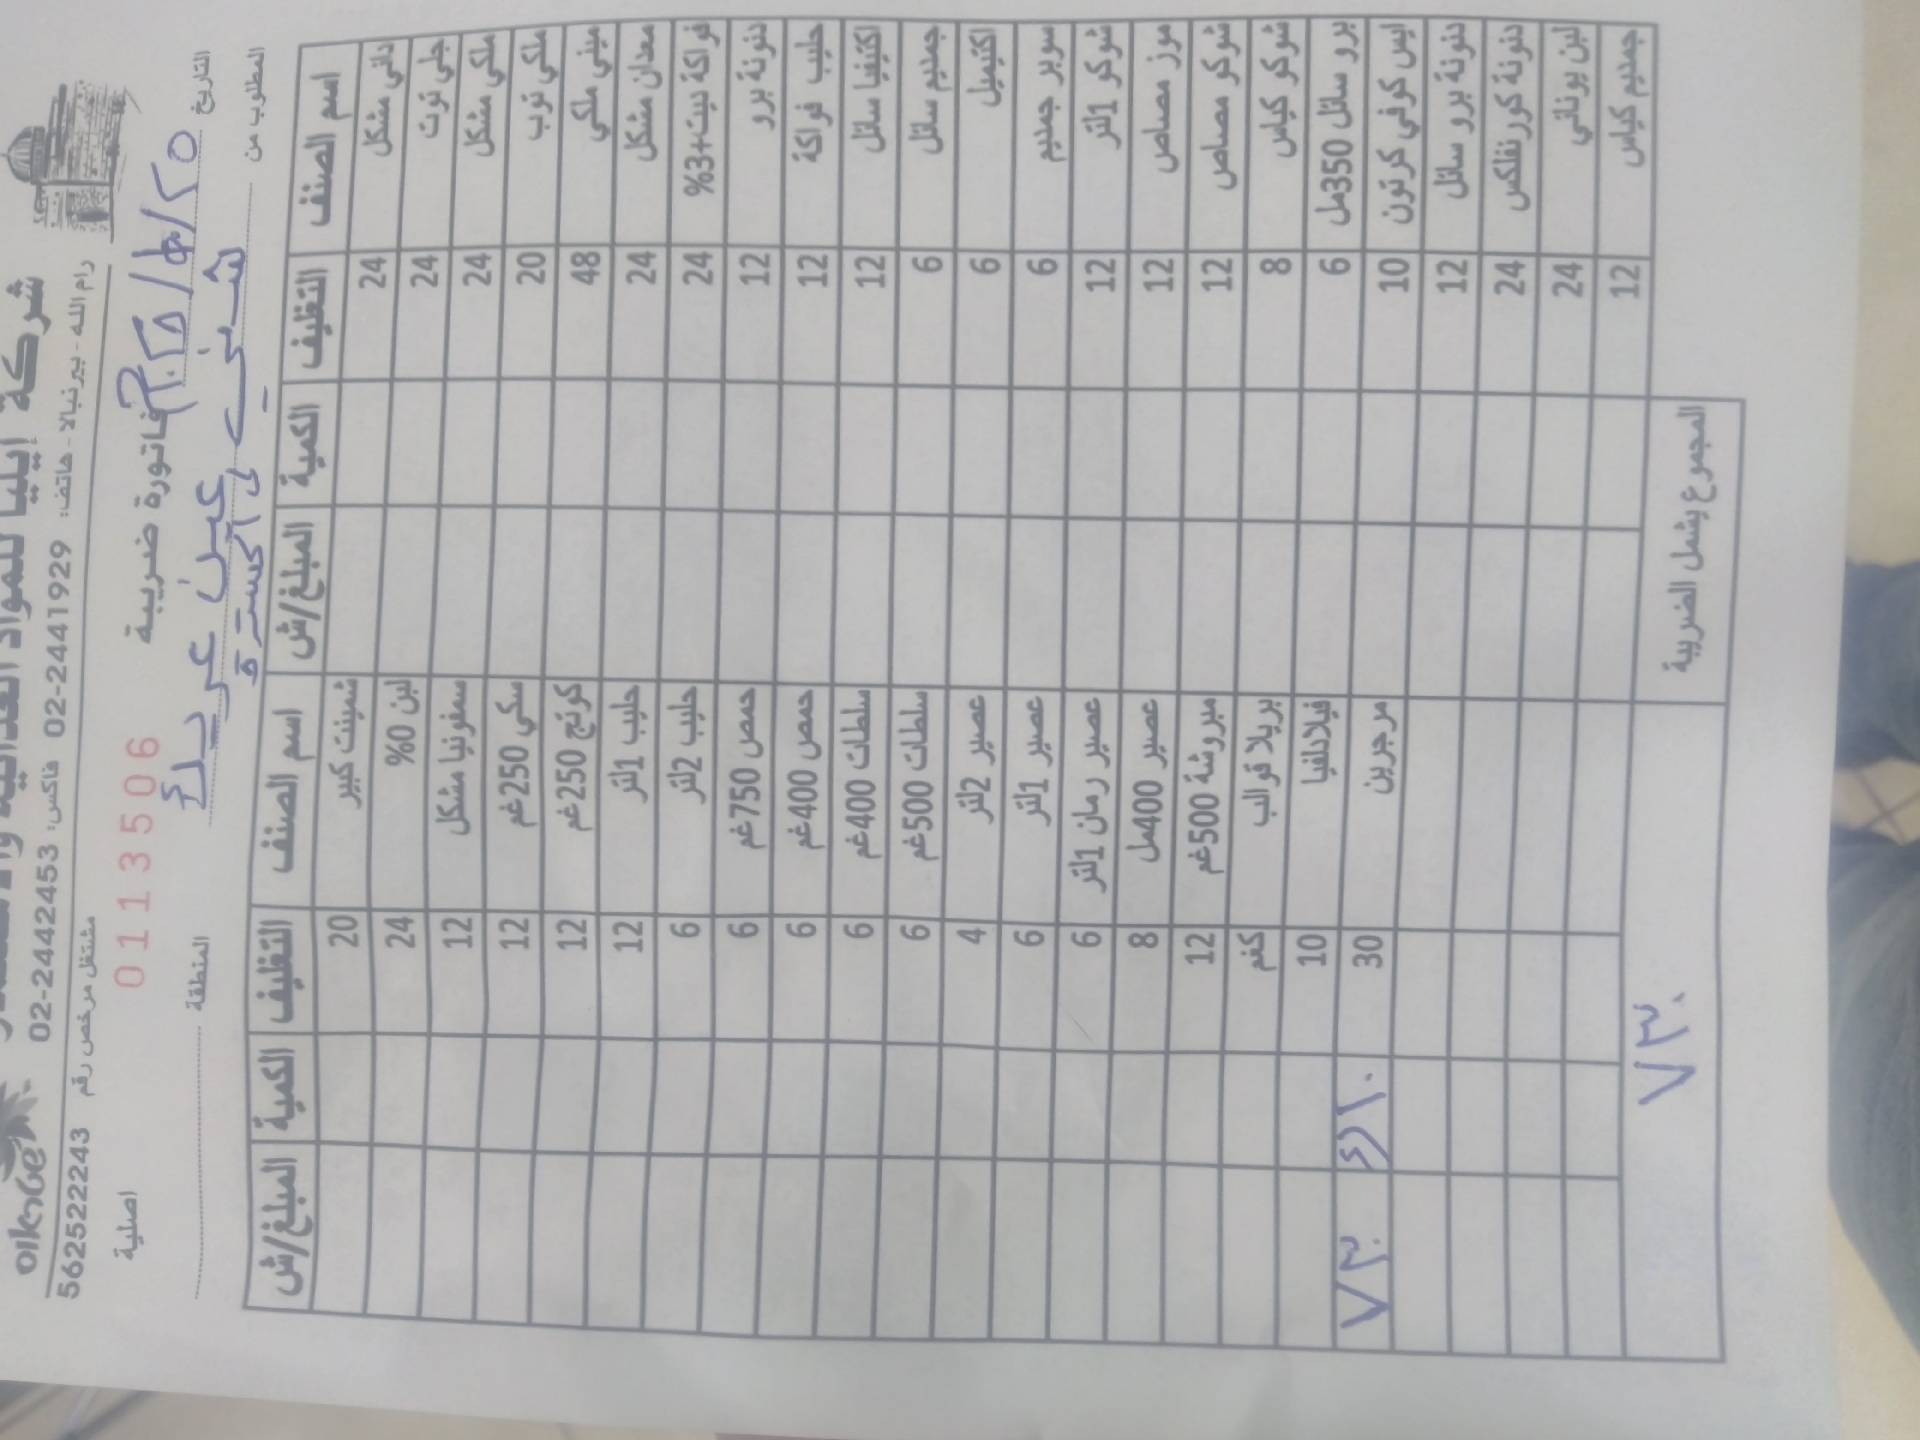 شركة إيليا للمواد الغذائية
رام الله - بير نبالا - هاتف: 02-2441929 فاكس: 02-2442453
مشتغل مرخص رقم 562522243
فاتورة ضريبة
0113506
اصلية
التاريخ
المطلوب من
المنطقة
اسم الصنف التغليف الكمية المبلغ/ش اسم الصنف التغليف الكمية المبلغ/ش
داني مشكل 24 شمينت كبير 20
جلي توت 24 لبن 0% 24
ملكي مشكل 24 سمفونيا مشكل 12
ملكي توب 20 سكي 250غم 12
ميني ملكي 48 كوتج 250غم 12
معدان مشكل 24 حليب 1لتر 12
فواكة نيت+3% 24 حليب 2لتر 6
دنونة برو 12 حمص 750غم 6
حليب فواكة 12 حمص 400غم 6
اكتيفيا سائل 12 سلطات 400غم 6
جمديم سائل 6 سلطات 500غم 6
اكتيميل 6 عصير 2لتر 4
سوبر جمديم 6 عصير 1لتر 6
شوكو 1لتر 12 عصير رمان 1لتر 6
موز مصاص 12 عصير 400مل 8
شوكو مصاص 12 مبروشة 500غم 12
شوكو كياس 8 بريلا قوالب كغم
برو سائل 350مل 6 فيلادلفيا 10
ايس كوفي كرتون 10 مرجرين 30 ٧٣٠
دنونة برو سائل 12
دنونة كورنفلكس 24
لبن يوناني 24
جمديم كياس 12
المجموع يشمل الضريبة ٧٣٠